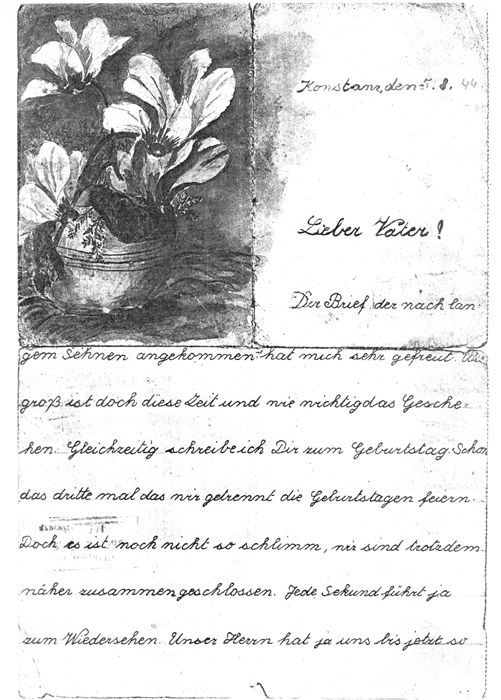 Konstanz, den 5. 8. 44
Lieber Vater!
Der Brief, der nach lan-
gem Sehnen angekommen hat mich sehr gefreut. Wie
groß ist doch diese Zeit und wie wichtig das Gesche-
hen. Gleichzeitig schreibe ich Dir zum Geburtstag. Schon
das dritte mal das wir getrennt die Geburtstagen feiern.
Doch es ist noch nicht so schlimm, wir sind trotzdem
näher zusammengeschlossen. Jede Sekund führt ja
zum Wiedersehen. Unser Herrn hat ja uns bis jetzt so